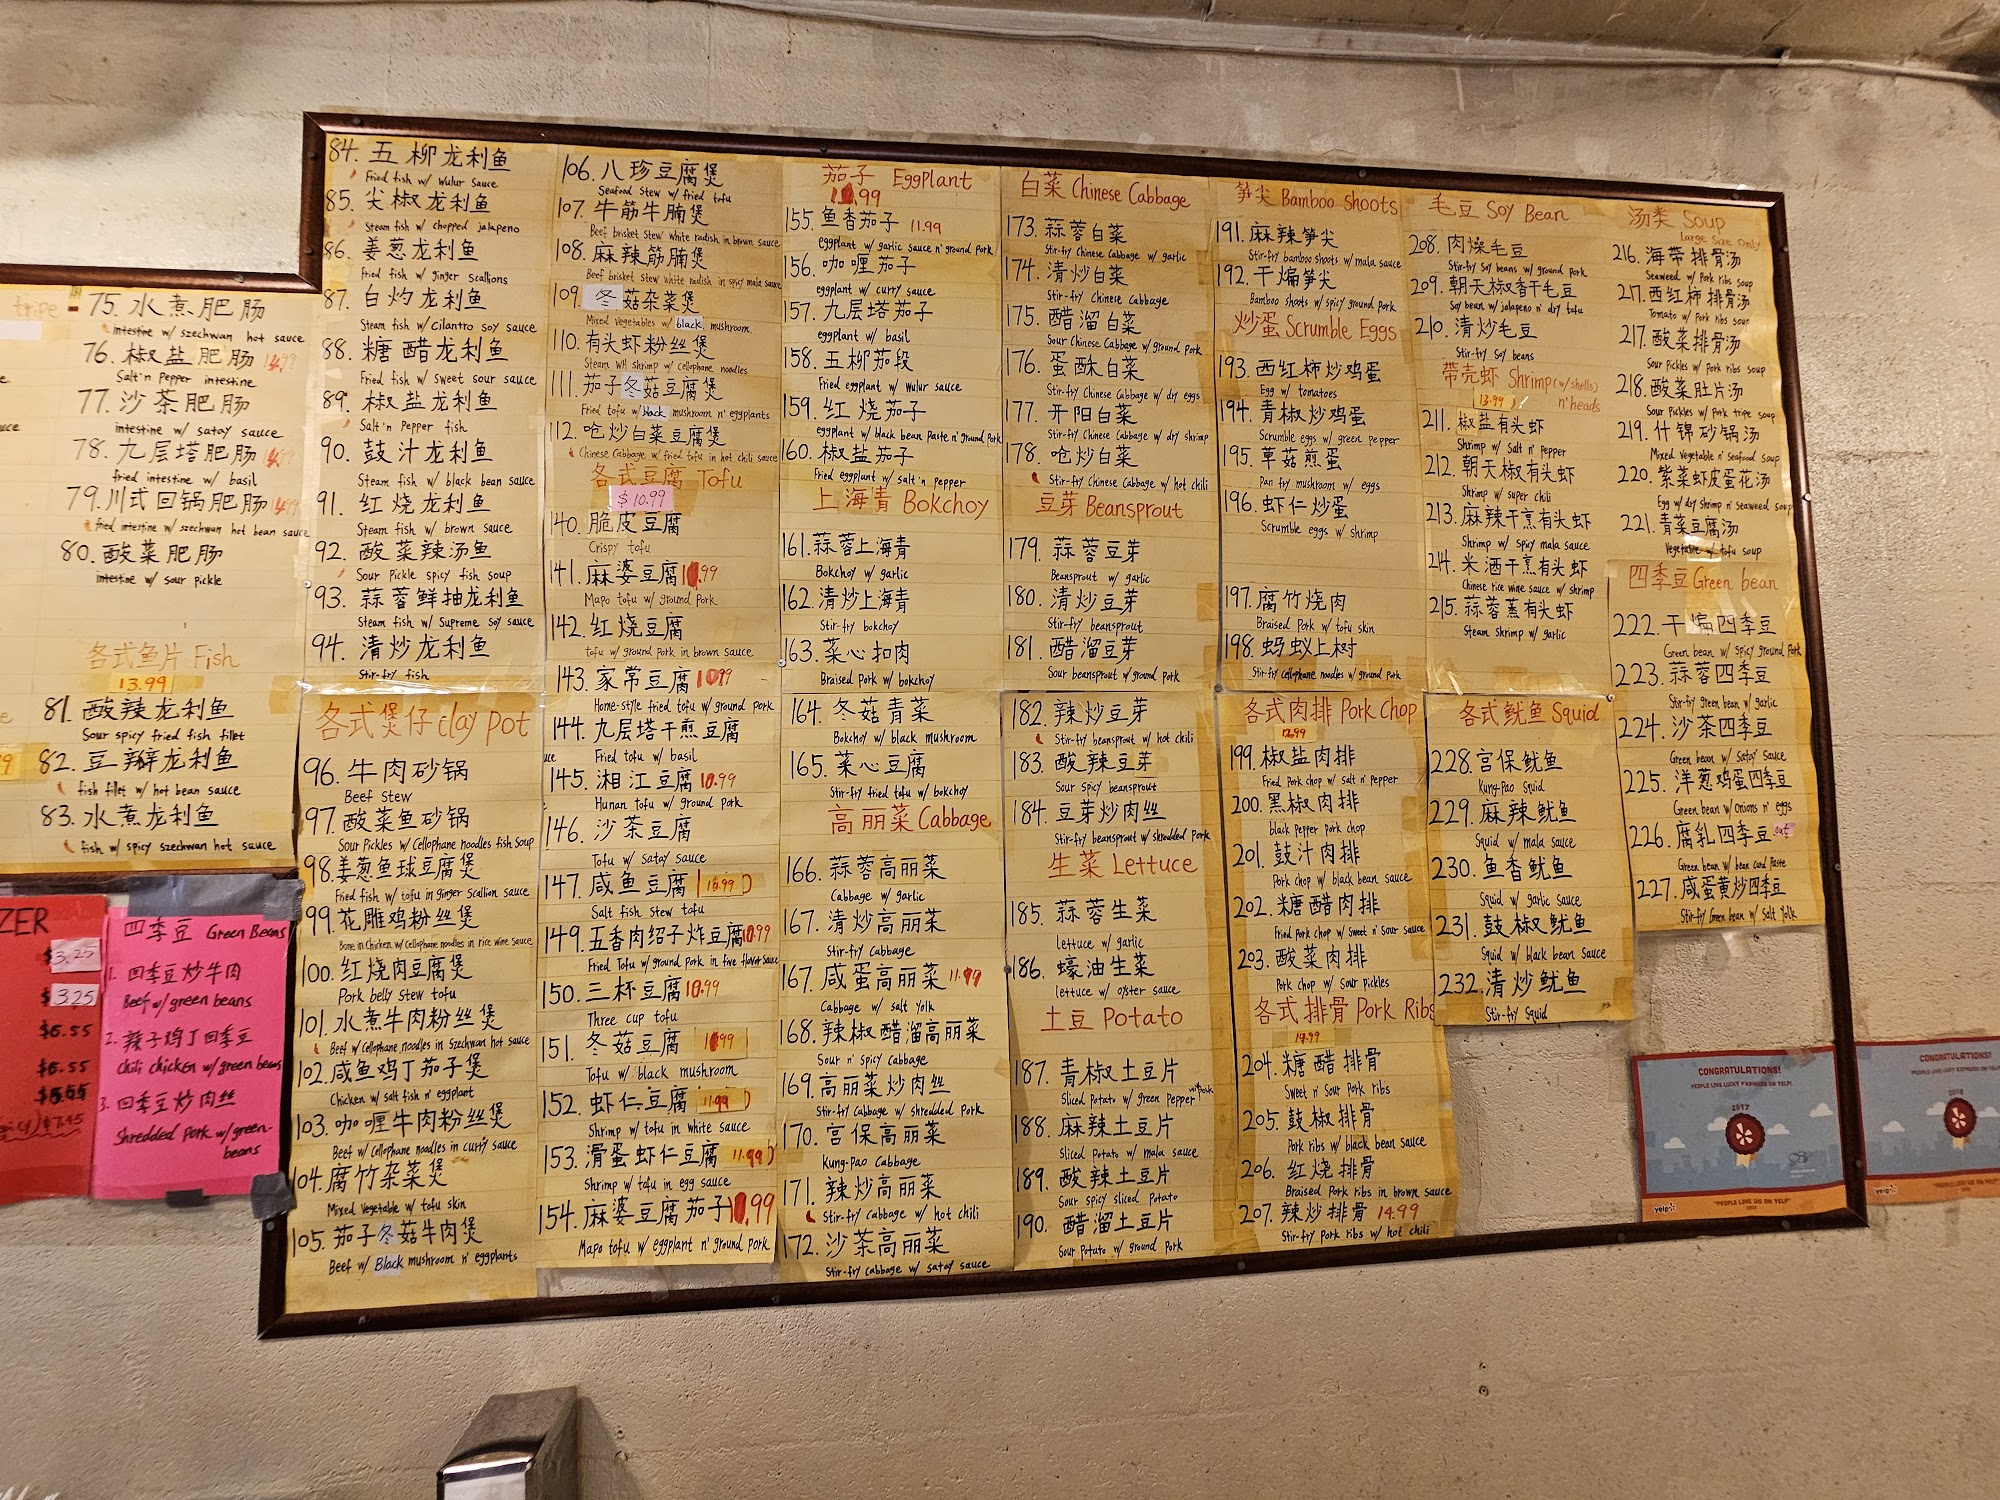 tripe
75. 水煮肥肠
intestine w/ szechwan hot sauce
76. 椒盐肥肠 14.99
Salt'n Pepper intestine
77. 沙茶肥肠
intestine w/ satay sauce
78. 九层塔肥肠
fried intestine w/ basil
79. 川式回锅肥肠
fried intestine w/ szechwan hot bean sauce
80. 酸菜肥肠
intestine w/ sour pickle
各式鱼片 Fish
13.99
81. 酸辣龙利鱼
Sour spicy fried fish fillet
82. 豆瓣龙利鱼
fish fillet w/ hot bean sauce
83. 水煮龙利鱼
fish w/ spicy szechwan hot sauce
ZER
$3.25
$3.25
$6.55
$6.55
四季豆 Green Beans
1. 四季豆炒牛肉
Beef w/ green beans
2. 辣子鸡丁四季豆
Chili chicken w/ green beans
3. 四季豆炒肉丝
Shredded Pork w/ green-
beans
84. 五柳龙利鱼
Fried fish w/ Wulur sauce
85. 尖椒龙利鱼
Steam fish w/ chopped jalapeno
86. 姜葱龙利鱼
Fried fish w/ ginger scallions
87. 白灼龙利鱼
Steam fish w/ Cilantro soy sauce
88. 糖醋龙利鱼
Fried fish w/ sweet sour sauce
89. 椒盐龙利鱼
Salt'n Pepper fish
90. 鼓汁龙利鱼
Steam fish w/ black bean sauce
91. 红烧龙利鱼
Steam fish w/ brown sauce
92. 酸菜辣汤鱼
Sour Pickle spicy fish soup
93. 蒜蓉鲜抽龙利鱼
Steam fish w/ Supreme Soy sauce
94. 清炒龙利鱼
Stir-fry fish
各式煲仔 clay pot
96. 牛肉砂锅
Beef Stew
97. 酸菜鱼砂锅
Sour Pickles w/ Cellophane noodles fish soup
98. 姜葱鱼球豆腐煲
Fried fish w/ tofu in ginger scallion sauce
99. 花雕鸡粉丝煲
Bone in Chicken w/ Cellophane noodles in rice wine sauce
100. 红烧肉豆腐煲
Pork belly stew tofu
101. 水煮牛肉粉丝煲
Beef w/ Cellophane noodles in Szechwan hot sauce
102. 咸鱼鸡丁茄子煲
Chicken w/ salt fish n' eggplant
103. 咖喱牛肉粉丝煲
Beef w/ Cellophane noodles in curry sauce
104. 腐竹杂菜煲
Mixed Vegetable w/ tofu skin
105. 茄子冬菇牛肉煲
Beef w/ Black mushroom n' eggplants
106. 八珍豆腐煲
Seafood Stew w/ fried tofu
107. 牛筋牛腩煲
Beef brisket Stew white radish in brown sauce
108. 麻辣筋腩煲
Beef brisket Stew white radish in spicy mala sauce
109 冬菇杂菜煲
Mixed Vegetables w/ black mushroom
110. 有头虾粉丝煲
Steam WH Shrimp w/ cellophane noodles
111. 茄子冬菇豆腐煲
Fried tofu w/ black mushroom n' eggplants
112. 呛炒白菜豆腐煲
Chinese Cabbage w/ fried tofu in hot chili sauce
各式豆腐 Tofu
$10.99
140. 脆皮豆腐
Crispy tofu
141. 麻婆豆腐 10.99
Mapo tofu w/ ground pork
142. 红烧豆腐
tofu w/ ground pork in brown sauce
143. 家常豆腐 10.99
Home-style fried tofu w/ ground pork
144. 九层塔干煎豆腐
Fried tofu w/ basil
145. 湘江豆腐 10.99
Hunan tofu w/ ground pork
146. 沙茶豆腐
Tofu w/ satay sauce
147. 咸鱼豆腐 10.99
Salt fish stew tofu
149. 五香肉绍子炸豆腐 10.99
Fried Tofu w/ ground pork in five flavor sauce
150. 三杯豆腐 10.99
Three cup tofu
151. 冬菇豆腐 10.99
Tofu w/ black mushroom
152. 虾仁豆腐 11.99
Shrimp w/ tofu in white sauce
153. 滑蛋虾仁豆腐 11.99
Shrimp w/ tofu in egg sauce
154. 麻婆豆腐茄子 10.99
Mapo tofu w/ eggplant n' ground pork
茄子 Eggplant
155. 鱼香茄子 11.99
eggplant w/ garlic sauce n' ground pork
156. 咖喱茄子
eggplant w/ curry sauce
157. 九层塔茄子
eggplant w/ basil
158. 五柳茄段
Fried eggplant w/ Wulur sauce
159. 红烧茄子
eggplant w/ black bean paste n' ground pork
160. 椒盐茄子
Fried eggplant w/ salt'n pepper
上海青 Bokchoy
161. 蒜蓉上海青
Bokchoy w/ garlic
162. 清炒上海青
Stir-fry bokchoy
163. 菜心扣肉
Braised Pork w/ bokchoy
164. 冬菇青菜
Bokchoy w/ black mushroom
165. 菜心豆腐
Stir-fry fried tofu w/ bokchoy
高丽菜 Cabbage
166. 蒜蓉高丽菜
Cabbage w/ garlic
167. 清炒高丽菜
Stir-fry Cabbage
167. 咸蛋高丽菜 11.99
Cabbage w/ salt Yolk
168. 辣椒醋溜高丽菜
Sour n' spicy Cabbage
169. 高丽菜炒肉丝
Stir-fry Cabbage w/ shredded pork
170. 宫保高丽菜
Kung-Pao Cabbage
171. 辣炒高丽菜
Stir-fry Cabbage w/ hot chili
172. 沙茶高丽菜
Stir-fry Cabbage w/ satay sauce
白菜 Chinese Cabbage
173. 蒜蓉白菜
Stir-fry Chinese Cabbage w/ garlic
174. 清炒白菜
Stir-fry Chinese Cabbage
175. 醋溜白菜
Sour Chinese Cabbage w/ ground pork
176. 蛋酥白菜
Stir-fry Chinese Cabbage w/ dry eggs
177. 开阳白菜
Stir-fry Chinese Cabbage w/ dry shrimp
178. 呛炒白菜
Stir-fry Chinese Cabbage w/ hot chili
豆芽 Beansprout
179. 蒜蓉豆芽
Beansprout w/ garlic
180. 清炒豆芽
Stir-fry beansprout
181. 醋溜豆芽
Sour beansprout w/ ground pork
182. 辣炒豆芽
Stir-fry beansprout w/ hot chili
183. 酸辣豆芽
Sour spicy beansprout
184. 豆芽炒肉丝
Stir-fry beansprout w/ shredded pork
生菜 Lettuce
185. 蒜蓉生菜
lettuce w/ garlic
186. 蠔油生菜
lettuce w/ oyster sauce
土豆 Potato
187. 青椒土豆片
Sliced Potato w/ green Pepper w/ Pork
188. 麻辣土豆片
Sliced Potato w/ mala sauce
189. 酸辣土豆片
Sour spicy sliced Potato
190. 醋溜土豆片
Sour Potato w/ ground pork
笋尖 Bamboo Shoots
191. 麻辣笋尖
Stir-fry bamboo shoots w/ mala sauce
192. 干煸笋尖
Bamboo shoots w/ spicy ground pork
炒蛋 Scrumble Eggs
193. 西红柿炒鸡蛋
Egg w/ tomatoes
194. 青椒炒鸡蛋
Scrumble eggs w/ green pepper
195. 草菇煎蛋
Pan fry mushroom w/ eggs
196. 虾仁炒蛋
Scrumble eggs w/ shrimp
197. 腐竹烧肉
Braised Pork w/ tofu skin
198. 蚂蚁上树
Stir-fry cellophane noodles w/ ground pork
各式肉排 Pork Chop
199. 椒盐肉排
Fried Pork chop w/ Salt n' pepper
200. 黑椒肉排
black pepper pork chop
201. 鼓汁肉排
Pork chop w/ black bean sauce
202. 糖醋肉排
Fried pork chop w/ Sweet n' Sour sauce
203. 酸菜肉排
Pork chop w/ sour pickles
各式排骨 Pork Ribs
14.99
204. 糖醋排骨
Sweet n' Sour Pork ribs
205. 鼓椒排骨
Pork ribs w/ black bean sauce
206. 红烧排骨
Braised Pork ribs in brown sauce
207. 辣炒排骨 14.99
Stir-fry pork ribs w/ hot chili
毛豆 Soy Bean
208. 肉燥毛豆
Stir-fry soy beans w/ ground pork
209. 朝天椒香干毛豆
Soy bean w/ jalapeno n' dry tofu
210. 清炒毛豆
Stir-fry Soy beans
带壳虾 Shrimp (w/ shells)
n' heads
13.99
211. 椒盐有头虾
Shrimp w/ Salt n' pepper
212. 朝天椒有头虾
Shrimp w/ super chili
213. 麻辣干烹有头虾
Shrimp w/ spicy mala sauce
214. 米酒干烹有头虾
Chinese rice wine sauce w/ shrimp
215. 蒜蓉蒸有头虾
Steam shrimp w/ garlic
各式鱿鱼 Squid
228. 宫保鱿鱼
Kung-Pao Squid
229. 麻辣鱿鱼
Squid w/ mala sauce
230. 鱼香鱿鱼
Squid w/ garlic sauce
231. 鼓椒鱿鱼
Squid w/ black bean Sauce
232. 清炒鱿鱼
Stir-fry Squid
汤类 Soup
Large Size Only
216. 海带排骨汤
Seaweed w/ Pork ribs soup
217. 西红柿排骨汤
Tomato w/ Pork ribs soup
217. 酸菜排骨汤
Sour Pickles w/ Pork ribs soup
218. 酸菜肚片汤
Sour Pickles w/ Pork tripe soup
219. 什锦砂锅汤
Mixed Vegetable n' seafood soup
220. 紫菜虾皮蛋花汤
Egg w/ dry shrimp n' seaweed soup
221. 青菜豆腐汤
Vegetable w/ tofu soup
四季豆 Green bean
222. 干煸四季豆
Green bean w/ spicy ground pork
223. 蒜蓉四季豆
Stir-fry green bean w/ garlic
224. 沙茶四季豆
Green bean w/ Satay Sauce
225. 洋葱鸡蛋四季豆
Green bean w/ Onions n' eggs
226. 腐乳四季豆 out
Green bean w/ bean curd paste
227. 咸蛋黄炒四季豆
Stir-fry Green bean w/ Salt Yolk
CONGRATULATIONS!
PEOPLE LOVE LUCKY EXPRESS ON YELP!
2017
"PEOPLE LOVE US ON YELP"
yelp
CONGRATULATIONS!
2018
"PEOPLE LOVE US ON YELP"
yelp